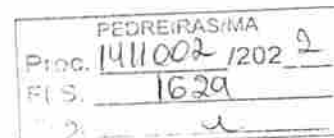 PEDREIRAS/MA
Proc. 1411002 /2022
FLS. 1629